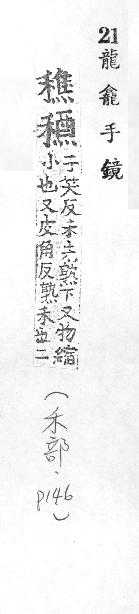 21 龍龕手鏡
穛
子芺反本下又物縮
小也又皮角反熟未也二
(禾部、p146)